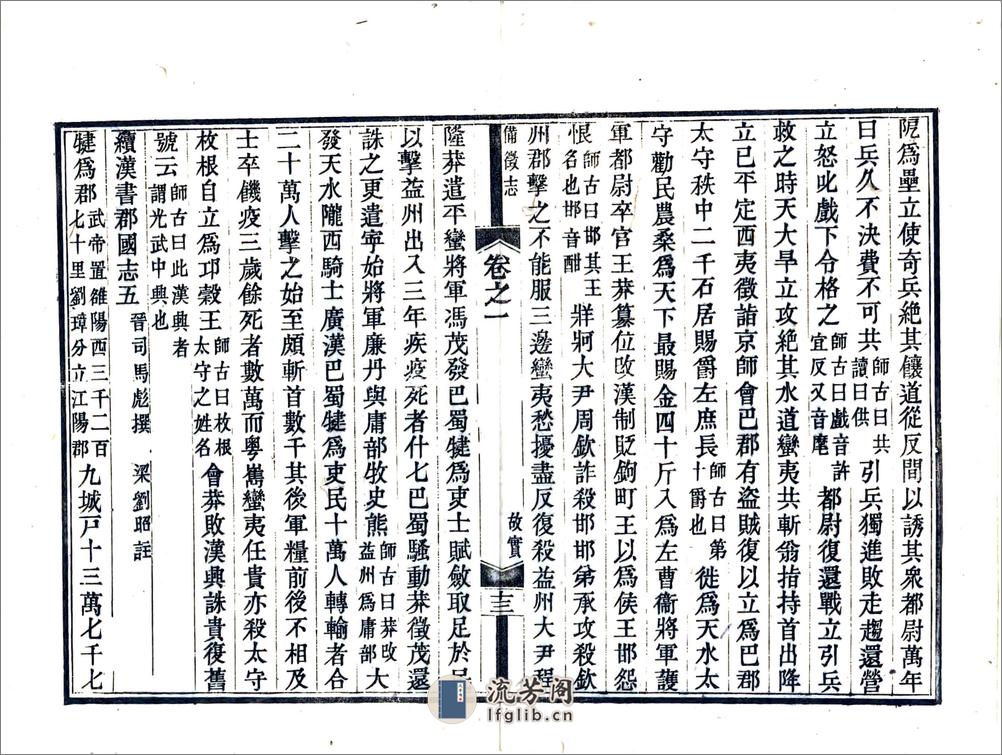 阸爲壘立使奇兵絶其饟道從反間以誘其衆都尉萬年
曰兵久不決費不可共師古曰共讀曰供引兵獨進敗走趨還營
立怒叱戲下令格之師古曰戲音許宜反又音麾都尉復還戰立引兵
救之時天大旱立攻絶其水道蠻夷共斬翁指持首出降
立已平定西夷徵詣京師會巴郡有盜賊復以立爲巴郡
太守秩中二千石居賜爵左庶長師古曰第十爵也徙爲天水太
守勸民農桑爲天下最賜金四十斤入爲左曹衞將軍護
軍都尉卒官王莽篡位攺漢制貶鉤町王以爲侯王邯怨
恨師古曰邯其王名也邯音酣牂牁大尹周欽詐殺邯邯弟承攻殺欽
州郡擊之不能服三邊蠻夷愁擾盡反復殺益州大尹程
備徵志 卷之一 故實 十三
隆莽遣平蠻將軍馮茂發巴蜀犍爲吏士賦斂取足於民
以擊益州出入三年疾疫死者什七巴蜀騷動莽徵茂還
誅之更遣寧始將軍廉丹與庸部牧史熊師古曰莽攺益州爲庸部大
發天水隴西騎士廣漢巴蜀犍爲吏民十萬人轉輸者合
二十萬人擊之始至頗斬首數千其後軍糧前後不相及
士卒饑疫三歲餘死者數萬而粵巂蠻夷任貴亦殺太守
枚根自立爲邛穀王師古曰枚根太守之姓名會莽敗漢興誅貴復舊
號云師古曰此漢興者謂光武中興也
續漢書郡國志五 晉司馬彪撰 梁劉昭註
犍爲郡武帝置雒陽西三千二百七十里劉璋分立江陽郡九城戸十三萬七千七
流芳阁
lfglib.cn